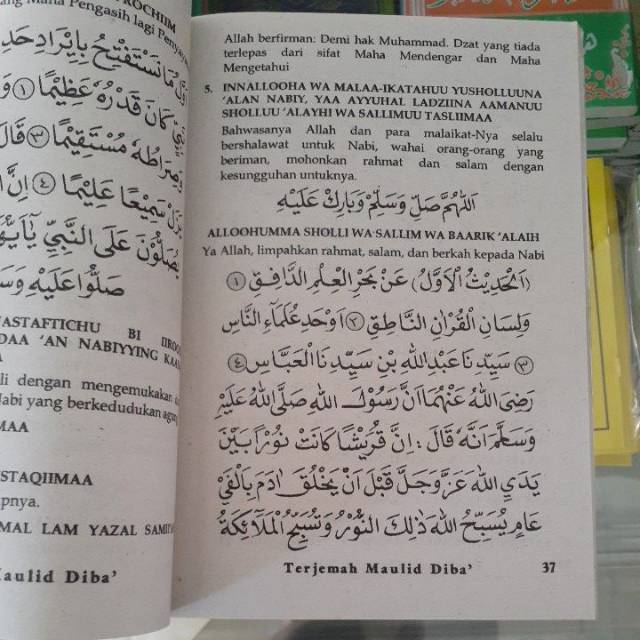 ROCHIIM
Maha Pengasih lagi Penya
اَوَّلُ مَا نَسْتَفْتِحُ بِاِيْرَادِ حَدِ
كَانَ قَدْرُهُ عَظِيْمًا ١
صِرَاطُهُ مُسْتَقِيْمًا ٣ قَالَ
يَزَلْ سَمِيْعًا عَلِيْمًا ٤ اِنَّ ا
يُصَلُّوْنَ عَلَى النَّبِيِّ يَآاَيُّهَ
صَلُّوْا عَلَيْهِ وَسَ
NASTAFTICHU BI IIROO
DAA 'AN NABIYYING KAA
li dengan mengemukakan
Nabi yang berkedudukan agun
MAA
STAQIIMAA
pnya.
MAL LAM YAZAL SAMII
Maulid Diba'
Allah berfirman: Demi hak Muhammad. Dzat yang tiada
terlepas dari sifat Maha Mendengar dan Maha
Mengetahui
5. INNALLOOHA WA MALAA-IKATAHUU YUSHOLLUUNA
'ALAN NABIY, YAA AYYUHAL LADZIINA AAMANUU
SHOLLUU 'ALAYHI WA SALLIMUU TASLIIMAA
Bahwasanya Allah dan para malaikat-Nya selalu
bershalawat untuk Nabi, wahai orang-orang yang
beriman, mohonkan rahmat dan salam dengan
kesungguhan untuknya.
اَللّٰهُمَّ صَلِّ وَسَلِّمْ وَبَارِكْ عَلَيْهِ
ALLOOHUMMA SHOLLI WA SALLIM WA BAARIK 'ALAIH
Ya Allah, limpahkan rahmat, salam, dan berkah kepada Nabi
(اَلْحَدِيْثُ الْاَوَّلُ) عَنْ بَحْرِ الْعِلْمِ الدَّافِقِ ١
وَلِسَانِ الْقُرْاٰنِ النَّاطِقِ ٢ اَوْحَدِ عُلَمَآءِ النَّاسِ
٣ سَيِّدِنَا عَبْدِ اللهِ بْنِ سَيِّدِنَا الْعَبَّاسِ ٤
رَضِيَ اللهُ عَنْهُمَا اَنَّ رَسُوْلَ اللهِ صَلَّى اللهُ عَلَيْهِ
وَسَلَّمَ اَنَّهُ قَالَ : اِنَّ قُرَيْشًا كَانَتْ نُوْرًا بَيْنَ
يَدَيِ اللهِ عَزَّ وَجَلَّ قَبْلَ اَنْ يَخْلُقَ اٰدَمَ بِاَلْفَيْ
عَامٍ يُسَبِّحُ اللهَ ذٰلِكَ النُّوْرُ وَتُسَبِّحُ الْمَلَآئِكَةُ
Terjemah Maulid Diba' 37